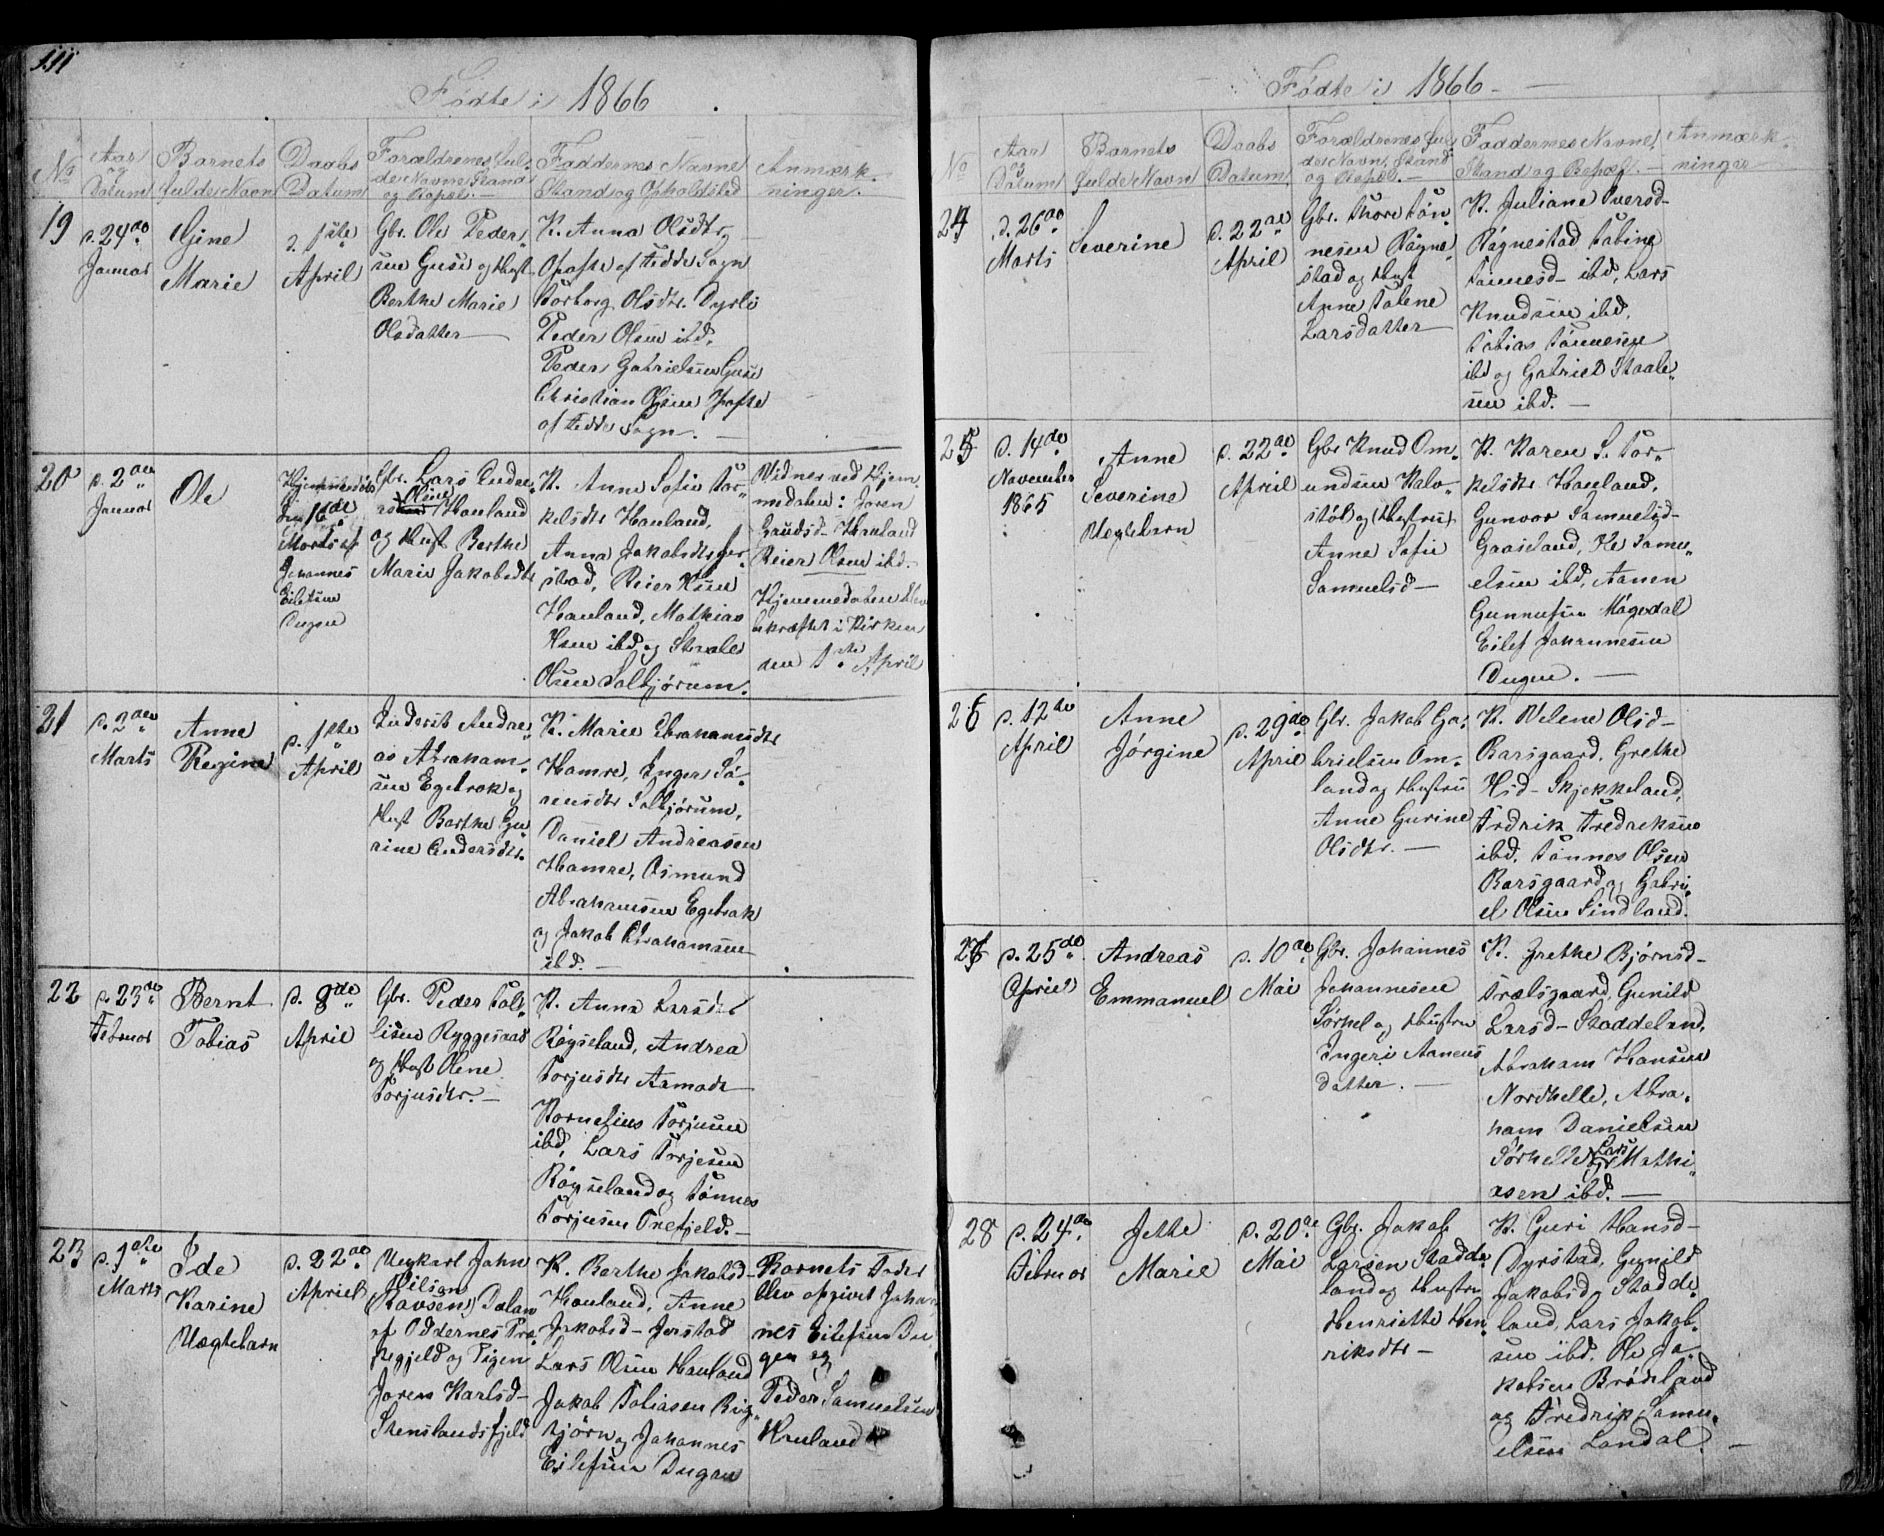 111
Fødte i 1866
No
Aar og Datum
Barnets fulde Navn
Daabs Datum
Forældrenes fulde Navne Stand og Bopæl.
Faddernes Navne Stand og Opholdsted
Anmærkninger.
19
d. 24de
Januar
Gine
Marie
d. 1ste
April
Gbr. Ole Peder-
sen Guse og Hust
Berthe Marie
Olsdatter
K. Anna Olsdtr
af Fedde Sogn
Torborg Olsdtr. Dyrli
Peder Olsen ibd.
Peder Gabrielsen Guse
Christian Olsen
af Fedde Sogn.
20
d. 2den
Januar
Ole
Hjemmedøbt
den 16de
Marts af
Johannes
Eilefsen
Dugan
Gbr. Lars Andre-
as Olsen Hauland
og Hust Berthe
Marie Jakobsdtr
K. Anne Sofie Tor-
kelsdtr Hauland,
Anna Jakobsdtr Jer-
stad, Reier Olsen
Hauland, Mathias
Hsen ibd. og Staale
Olsen Salthjørum.
Vidner ved Hjem-
medaben: Joren
Hauland
Reier Olsen ibd.
Hjemmedaben blev
bekræftet i Kirken
den 1ste April
21
d. 2den
Marts
Anne
Regine
d. 1ste
April
Inderst Andre-
as Abraham-
sen Egebrok og
Hust Berthe Gu-
rine Andersdtr.
K. Marie Abrahamsdtr
Hamre, Inger Tø-
nnesdtr Salthjørum,
Daniel Andreasen
Hamre, Osmund
Abrahamsen Egebrok
og Jakob Abrahamsen
ibd.
22
d. 23de
Februar
Bernt
Tobias
d. 8de
April
Gbr. Peder Tol-
lisen Ryggesaas
og Hust Olene
Torjusdtr.
K. Anna Larsdtr
Røyseland, Andrea
Torjusdtr Aamodt
Kornelius Torjusen
ibd, Lars Torjesen
Røyseland og Tønnes
Torjusen Trefjeld.
23
d. 1ste
Marts
Ide
Karine
Uægtebarn
d. 22de
April
Ungkarl John
Nilsen
(Stavsen) Dalan
af Oddernes Præ-
stegjeld og Pigen
Joren Karlsd-
Stenslandsfjeld
K. Berthe Jakobsd-
Hauland, Anne
Jakobsd- Jerstad
Lars Olsen Hauland
Jakob Tobiasen Big-
tjørn og Johannes
Eilefsen Dugan
Barnets Fader
blev opgivet Johan-
nes Eilefsen Du-
gan og
Peder Samuelsen
Hauland
Fødte i 1866
No
Aar og Datum
Barnets fulde Navn
Daabs Datum
Forældrenes fulde Navne, Stand og Bopæl.
Faddernes Navne, Stand og Bopæl.
Anmærkninger
24
d. 26de
Marts
Severine
d. 22de
April
Gbr. Thore Tøn-
nesen Røgne-
stad og Hust
Anne Tolene
Larsdatter
K. Juliane Iversd-
Røgnestad Tobine
Tønnesd- ibd, Lars
Knudsen ibd.
Tobias Tønnesen
ibd og Gabriel Staale-
sen ibd.
25
d. 14de
November
1865
Anne
Severine
Uegtebarn
d. 22de
April
Gbr Knud Om-
undsen Kalv-
støl og (Hustru)
Anne Sofie
Samuelsd-
K. Karen S. Tor-
kelsdtr Hauland,
Gunvor Samuelsd-
Gaaseland, Ole Samu-
elsen ibd, Aanen
Gunnufsen Møgedal
Eilef Johannesen
Dugan.
26
d. 12te
April
Anne
Jørgine
d. 29de
April
Gbr. Jakob Ga-
brielsen Om-
land og Hustru
Anne Gurine
Olsdtr.
K. Velene Olsd-
Barsgaard, Grethe
Hsd- Skjekkeland,
Frdrik Fredriksen
ibd. Tønnes Olsen
Barsgaard og Gabri-
el Olsen Sindland.
27
d. 25de
April
Andreas
Emmanuel
d. 10de
Mai
Gbr. Johannes
Johannesen
Sørhel og Hustru
Ingeri Aanens
datter.
K. Grethe Bjørnsd-
Trælsgaard, Gunild
Larsd- Staddelan,
Abraham Hansen
Nordhelle, Abra-
ham Danielsen
Sørhelle og Lars Mathi-
asen ibd.
28
d. 24de
Februar
Jethe
Marie
d. 20de
Mai
Gbr. Jakob
Larsen Stadde-
land og Hustru
Henriette Hen-
riksdtr-
K. Guri Hansd-
Dyrstad, Gunild
Jakobsd- Stadde-
land, Lars Jakob-
sen ibd. Ole Ja-
kobsen Brødeland
og Fredrik Samu-
elsen Landal.